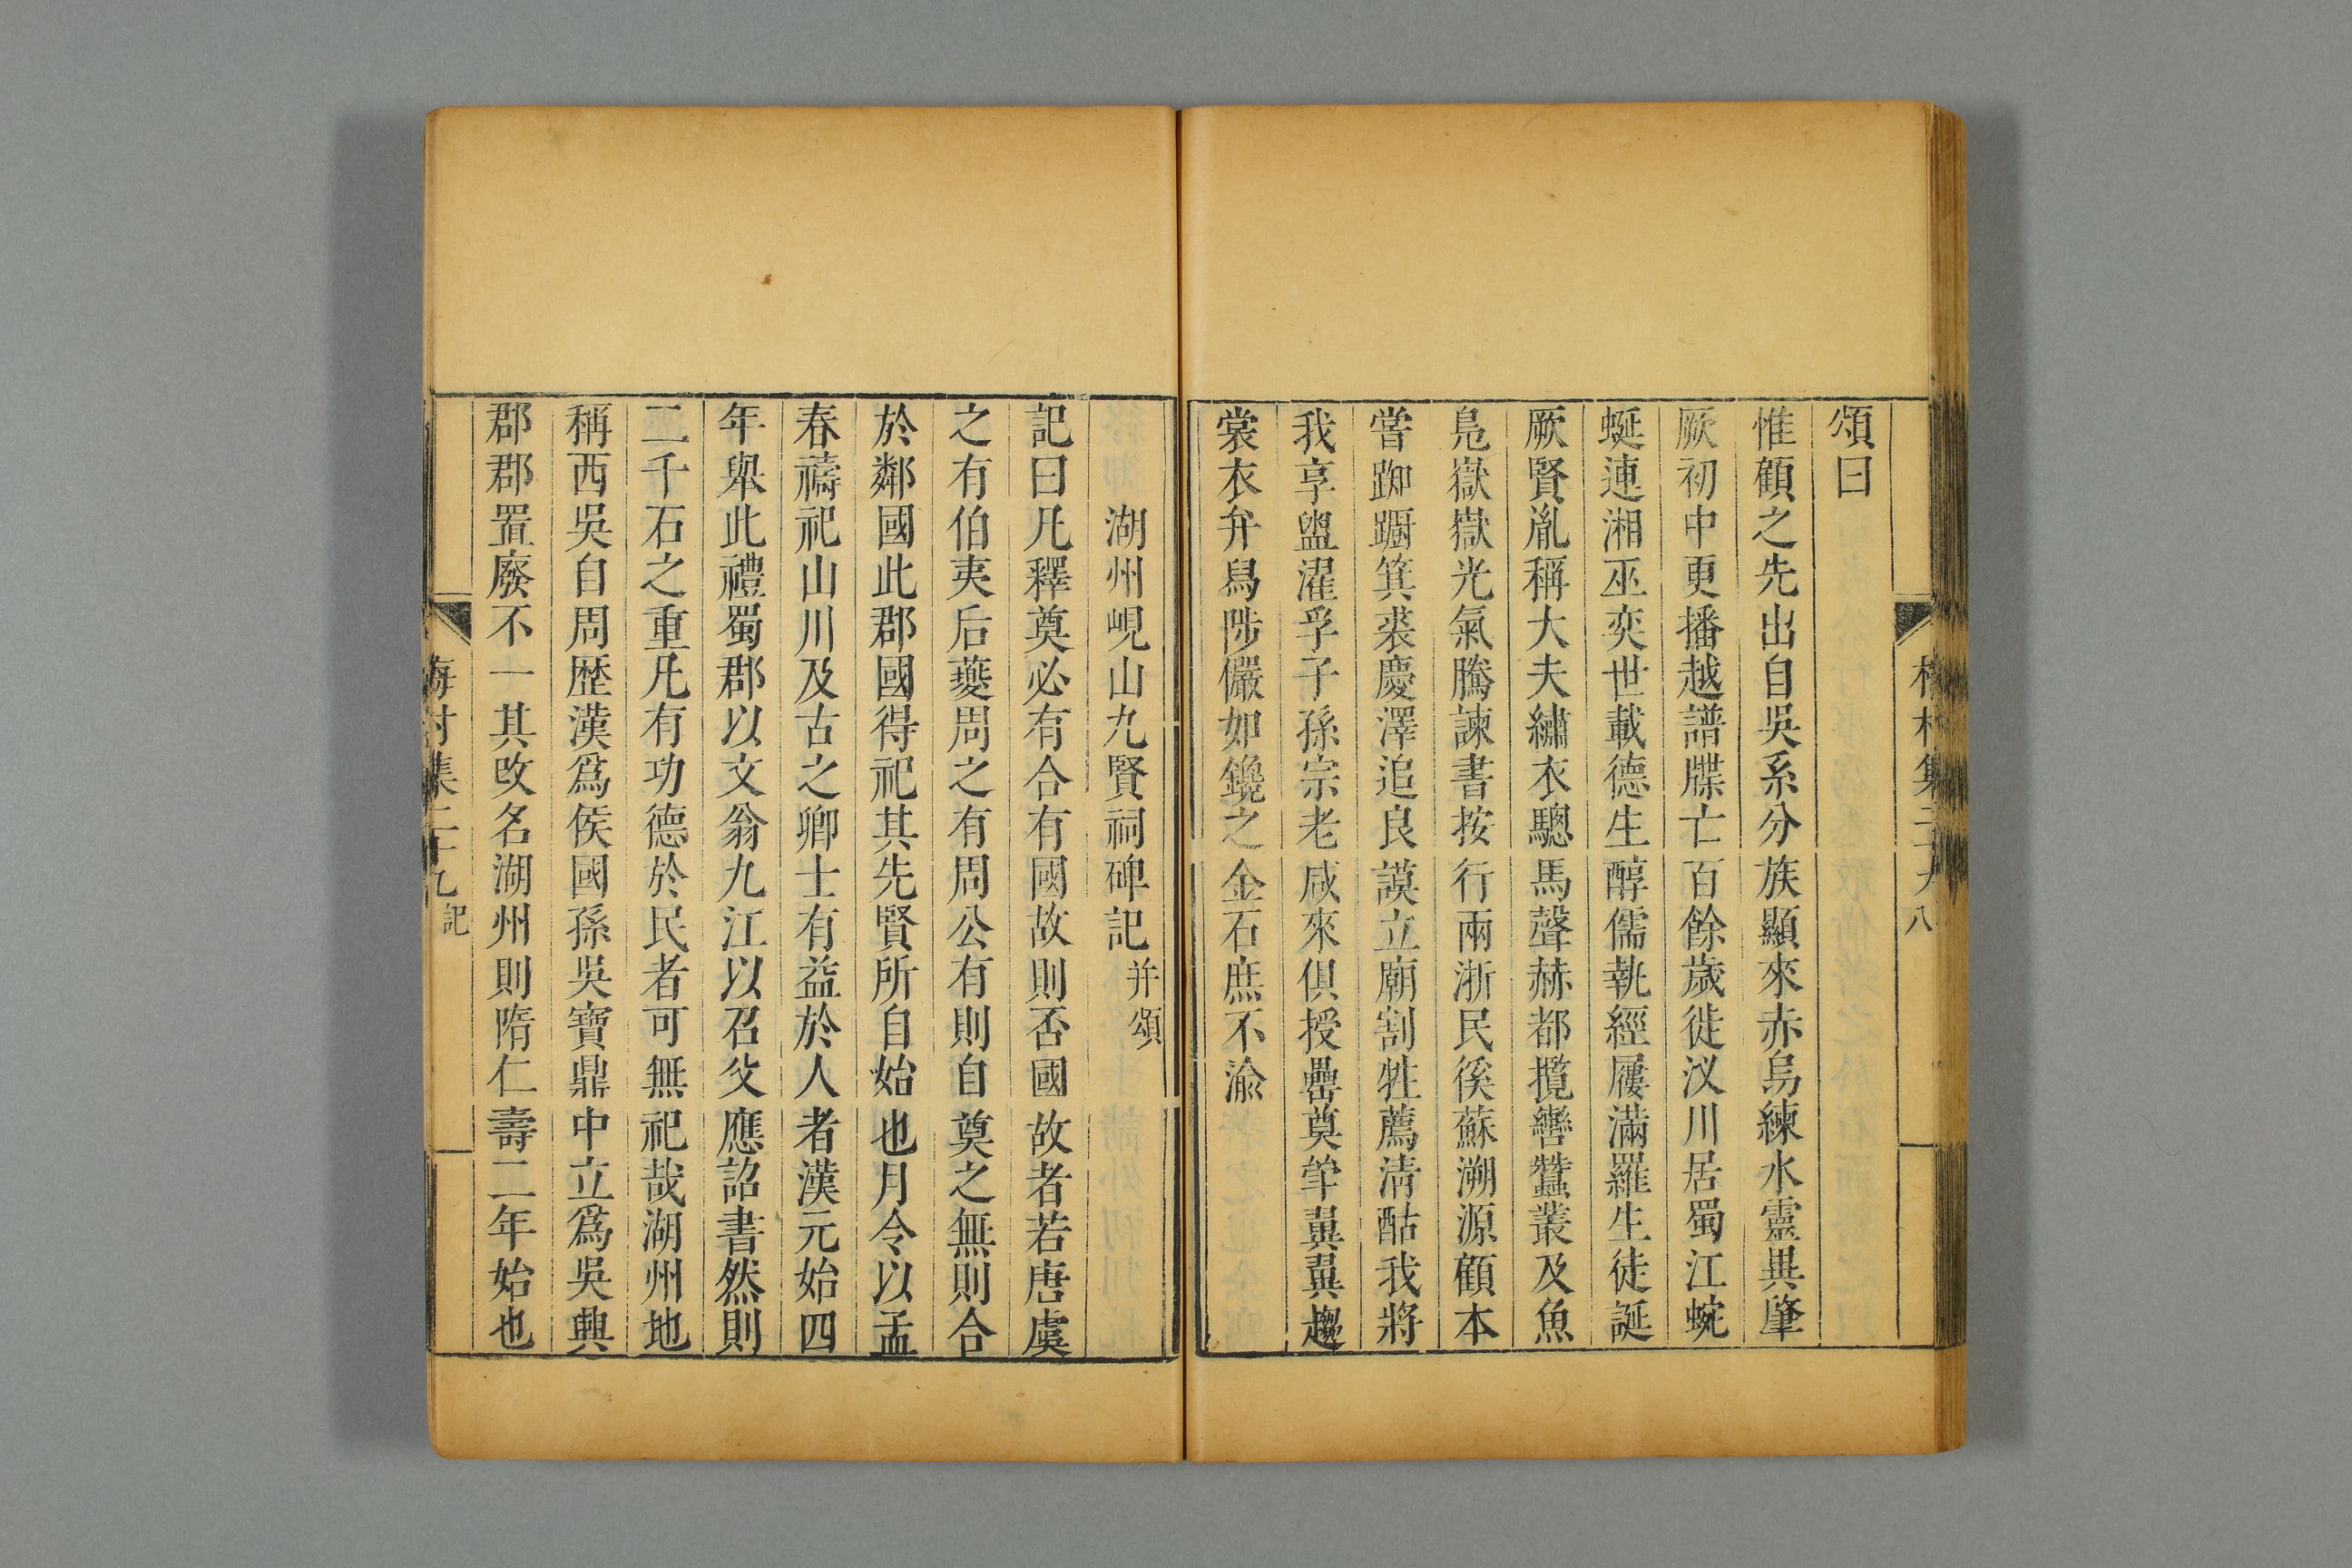 頌曰
惟顧之先出自吳系分族顯來赤烏練水靈異肇
厥初中更播越譜牒亡百餘歲徙汊川居蜀江蜿
蜒連湘巫奕世載德生醇儒執經屨滿羅生徒誕
厥賢胤稱大夫繡衣驄馬聲赫都攬轡蠶叢及魚
鳧嶽嶽光氣騰諫書按行兩浙民徯蘇溯源顧本
嘗踟躕箕裘慶澤追良謨立廟割牲薦清酤我將
我享盥濯孚子孫宗老咸來俱授罍奠斝翼翼趨
裳衣弁舄陟儼如鑱之金石庶不渝
湖州峴山九賢祠碑記并頌
記曰凡釋奠必有合有國故則否國故者若唐虞
之有伯夷后夔周之有周公有則自奠之無則合
於鄰國此郡國得祀其先賢所自始也月令以孟
春禱祀山川及古之卿士有益於人者漢元始四
年舉此禮蜀郡以文翁九江以召父應詔書然則
二千石之重凡有功德於民者可無祀哉湖州地
稱西吳自周歷漢爲侯國孫吳寶鼎中立爲吳興
郡郡置廢不一其改名湖州則隋仁壽二年始也
梅村集二十九 記